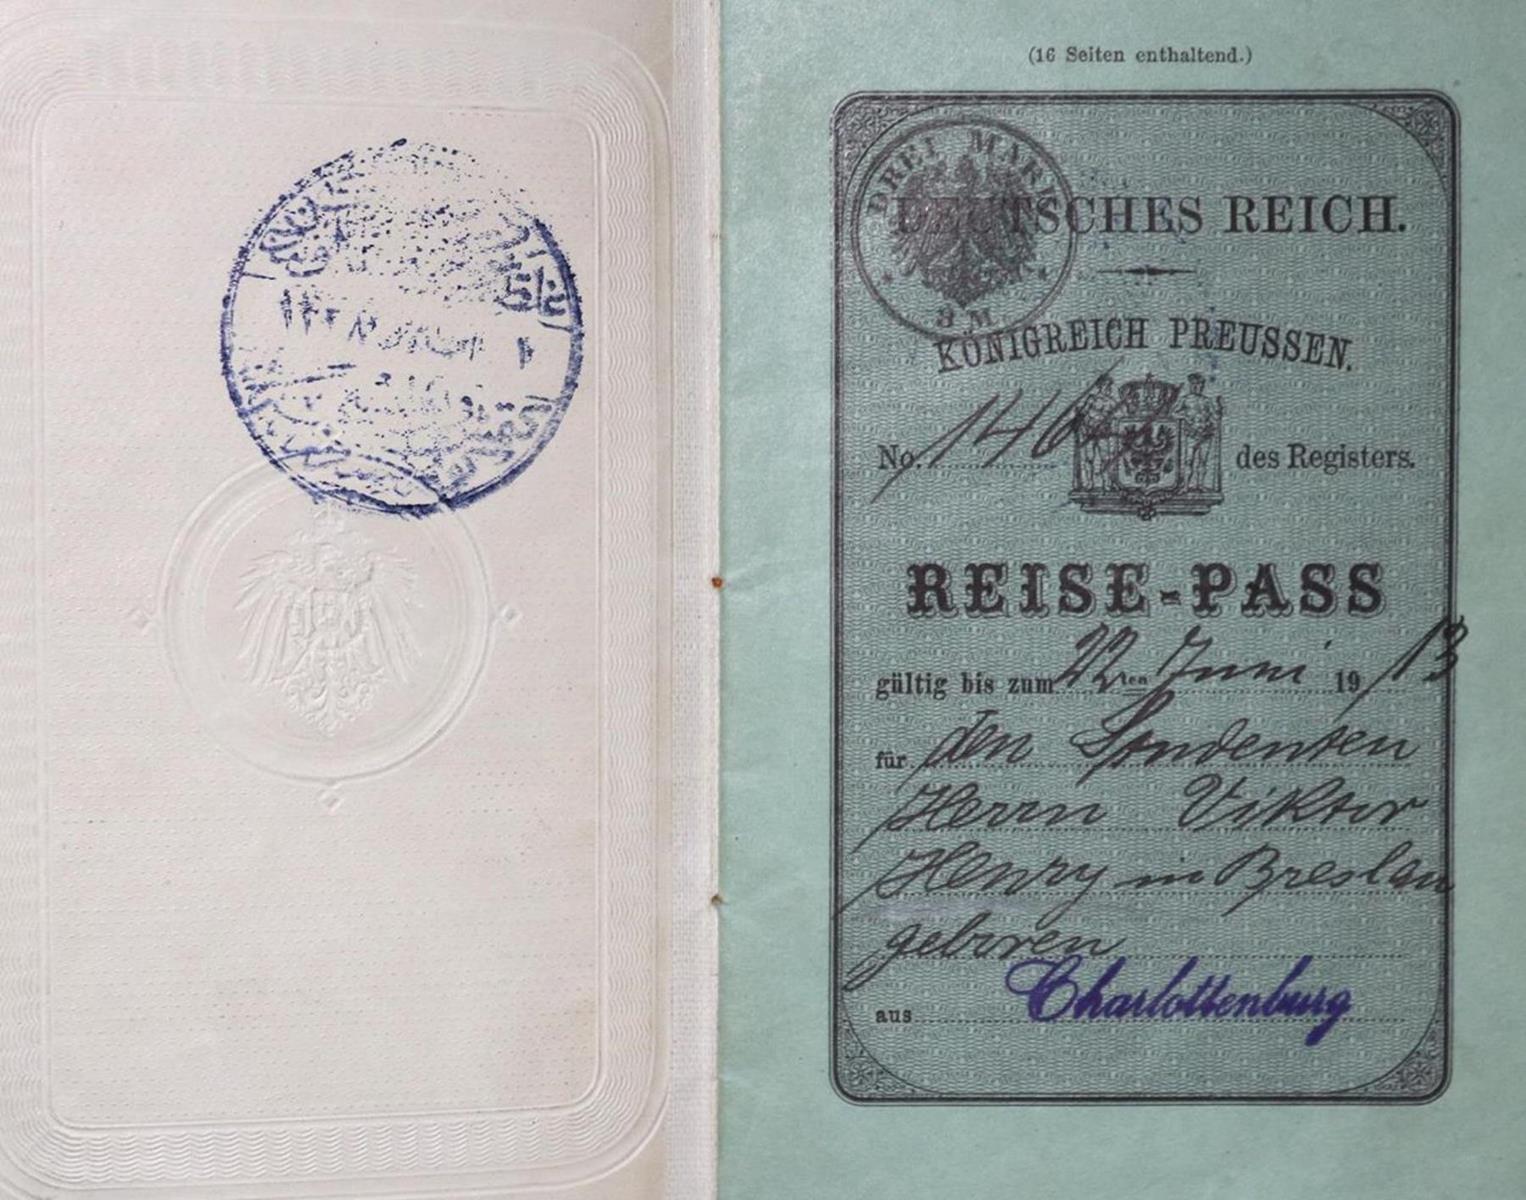 غلطه
(16 Seiten enthaltend.)
DREI MARK
3 M.
DEUTSCHES REICH.
KÖNIGREICH PREUSSEN.
No. 146 des Registers.
REISE-PASS
gültig bis zum 22ten Juni 1913
für den Studenten
Herrn Viktor
Henry in Breslau
geboren
aus Charlottenburg